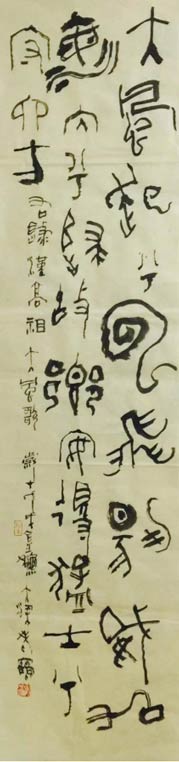 大風起兮雲飛揚威加
海內兮歸故鄉安得猛士兮
守四方
右録漢高祖大風歌